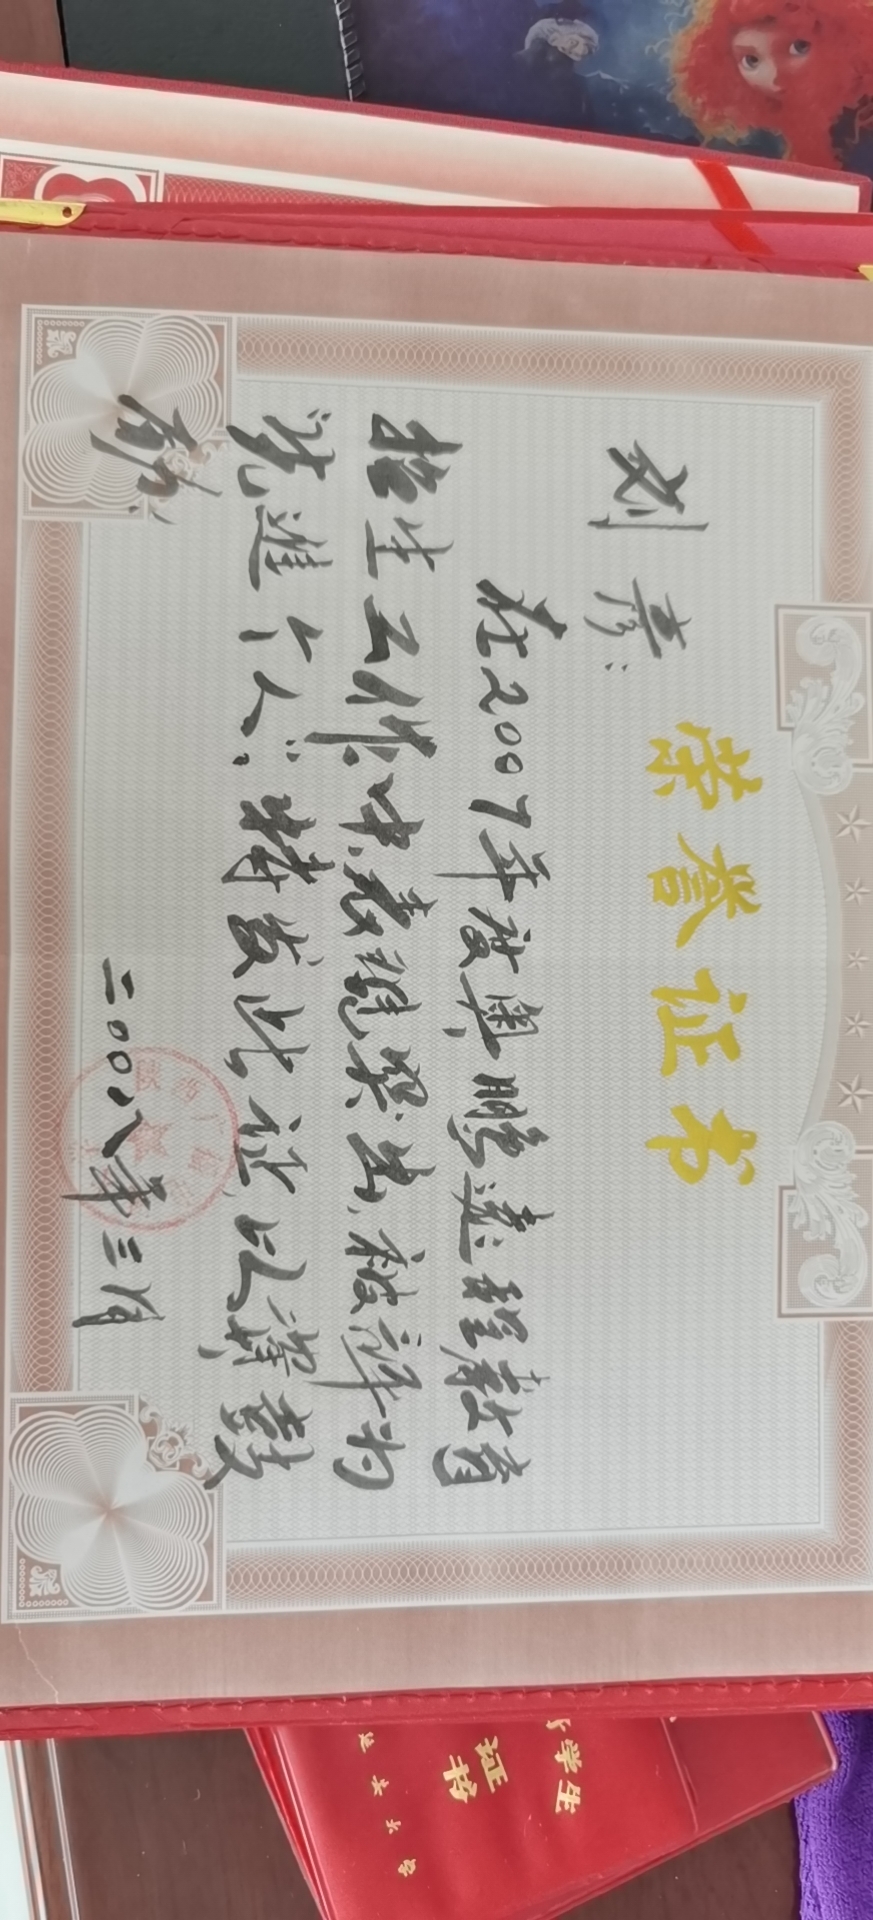 荣誉证书
刘彦：
在2007年度奥鹏远程教育
招生工作中表现突出，被评为
“先進个人”。特发此证，以资鼓
励。
二00八年三月
陕西广播
学生
证书
延安大学